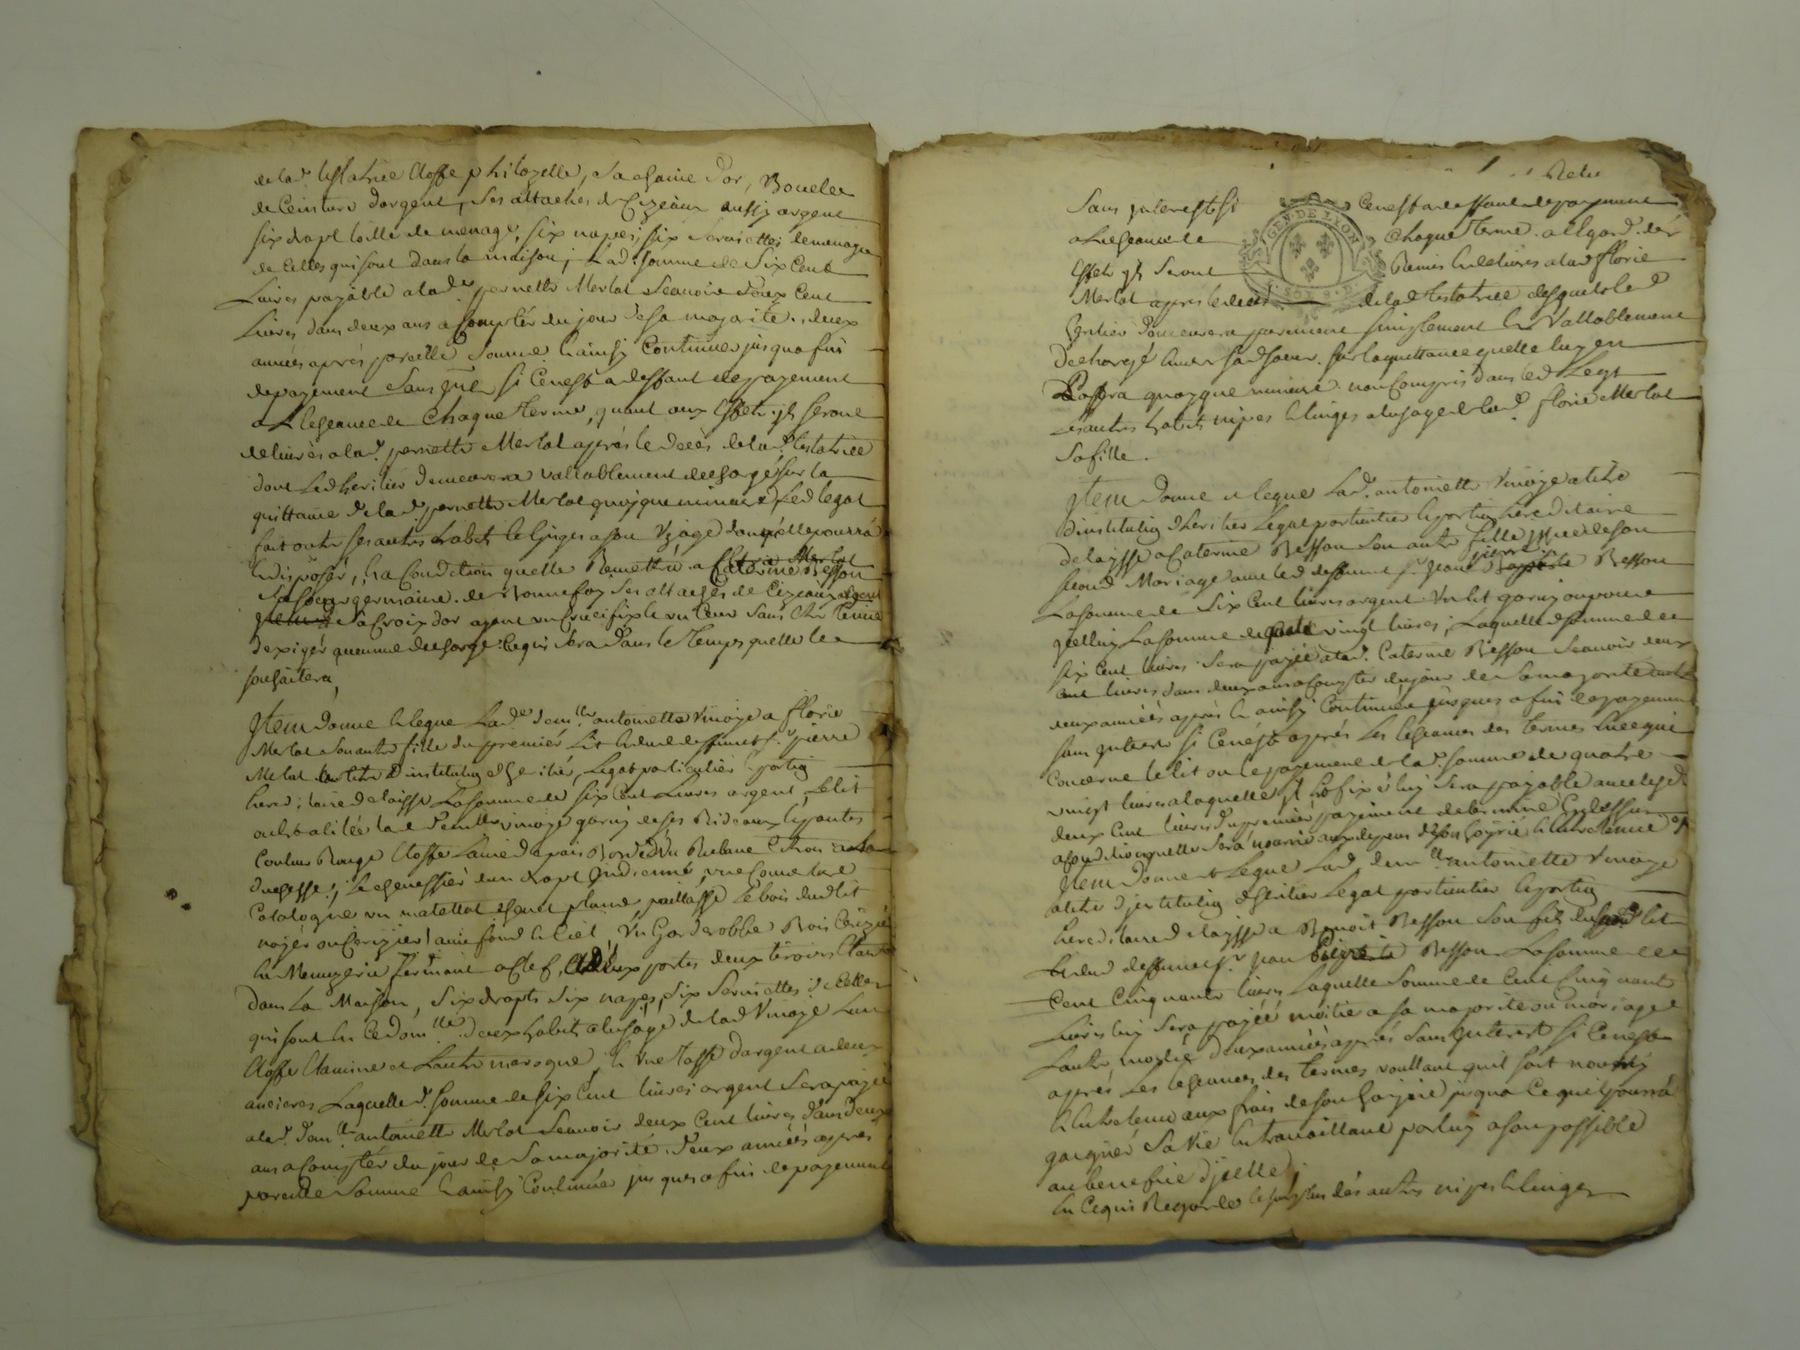 de lad. testatrice étoffe philozelle, sa chaine d'or, Boucles
de Ceinture d'argent, ses attaches de Cizeaux aussy argent
six drapt toille de menage, six napes, six serviettes de menage
de celles qui sont dans la maison; Lad. somme de Six Cent
Livres payable a lade pernette Merlat Scauoir deux Cent
Livres dans deux ans a Compter du jour de sa majorité, deux
années après pareille somme & ainsy Continuer jusqua fin
de payement sans si Cenest a deffaut de payement
a L'echeance de Chaque Terme, quant aux Effets ils seront
delivrés a lad. pernette Merlat après le décès de lad. testatrice
dont Led heritier demeurera vallablement dechargé sur la
quittance de lad. pernette Merlat quoyque mineure Led legat
fait outre ses autres habits & linges a son Uzage dont elle pourra
disposer, & a Condition quelle Remettra a Caterine Besson
Sa soeur germaine de Bonnefoy ses attaches de Cizeaux argent
la Croix d'or ayant un Crucifix & un Cœur sans être tenue
d'exiger aucunne decharge. Ce qui sera dans le Temps quelle le
souhaitera,
Item donne & legue Lade demlle antoinette Vinoye a florie
Merlat son autre fille du premiér Lit & dud deffunct sr pierre
Merlat a titre d'institution d'heritiér, Legat particuliér & portion
hereditaire delaisse La somme de six Cent Livres argent, Le lit
ou est alitée lad demlle vinoye garny de ses Rideaux & pantes
Couleur Rouge étoffe Laine du païs Bordé d'un Rubans Citron a la
duchesse; le chevessiér d'un drapt Indienne, une Couverture
Catalogne un matellat & plume, paillasse Le bois dud lit
noyér ou Cerizier avec fond & Ciel, Un Garderobbe Bois Cerizié
& Menuzerie fermant a Clef, a deux portes deux tiroirs étant
dans La Maison, Six drapts six napes, six Serviettes de celles
qui sont en Ce domlle, deux habits a lusage de lad Vinoye L'un
étoffe étamine et Lautre maroque, & une Tasse d'argent a deux
ances Laquelle d. somme de six Cent livres argent Sera payée
a lad. demlle antoinette Merlat Scauoir deux Cent livres dans deux
ans a Compter du jour de Sa majorité deux années après
pareille Somme & ainsy Continuer jusques a fin de payement
Sans Interests si Cenest a deffaut de payement
a L'echeance de Chaque Terme. a legard des
Effets ils Seront Remis & delivrés a lad florie
Merlat après le décès de lad testatrice desquels led
heritier demeurera purement simplement & Vallablement
Dechargé Envers Sad Soeur. sur la quittance quelle luy en
Passera quoyque mineure. non Compris dans led Legt
Les autres habits nipes & linges a lusage de lad. florie Merlat
Sa fille.
Item Donne et legue Lad. antoinette Vinoye a titre
d'institution d'heritier Legat particulier & portion hereditaire
delaysse a Caterine Besson Son autre fille yssue de son
second Mariage avec led deffunct sr Jean pierre Besson
La somme de Six Cent livres argent Un lit garny ou pour
La somme de quatre vingt livres; Laquelle d. somme de
six Cent livres Sera payée a lad. Caterine Besson Scauoir deux
Cent livres dans deux ans a Compter du jour de Sa majorité
deux années après & ainsy Continuer jusques a fin de payement
Sans Interests si Cenest après Les Echeances des termes & ce qui
Concerne le lit ou le payement de lad. somme de quatre
vingt livres a laquelle il est fixé luy Sera payable avec lesd.
deux Cent livres du premier payement
a Condition quelle Sera nourrie aux depens de son hoyrie & Entretenue
Item Donne et Legue Lad. demlle antoinette Vinoye
a titre d'institution d'heritier Legat particulier & portion
hereditaire delaysse a Benoit Besson Son fils du second lit
& dud deffunct sr Jean pierre Besson La somme de
Cent Cinquante livres Laquelle Somme de Cent Cinquante
Livres luy Sera payée moitie a sa majorité ou mariage
Lautre moytié deux années après Sans Interest si Cenest
après Les Echeances des termes voullant quil soit nourry
& Entretenu aux frais de son hoyrie jusqua Ce quil pourra
gaigner Sa Vie En travaillant par luy a son possible
au benefice d'icelle;
En Ce qui Regarde Le surplus des autres nipes & linges
GEN. DE LYON